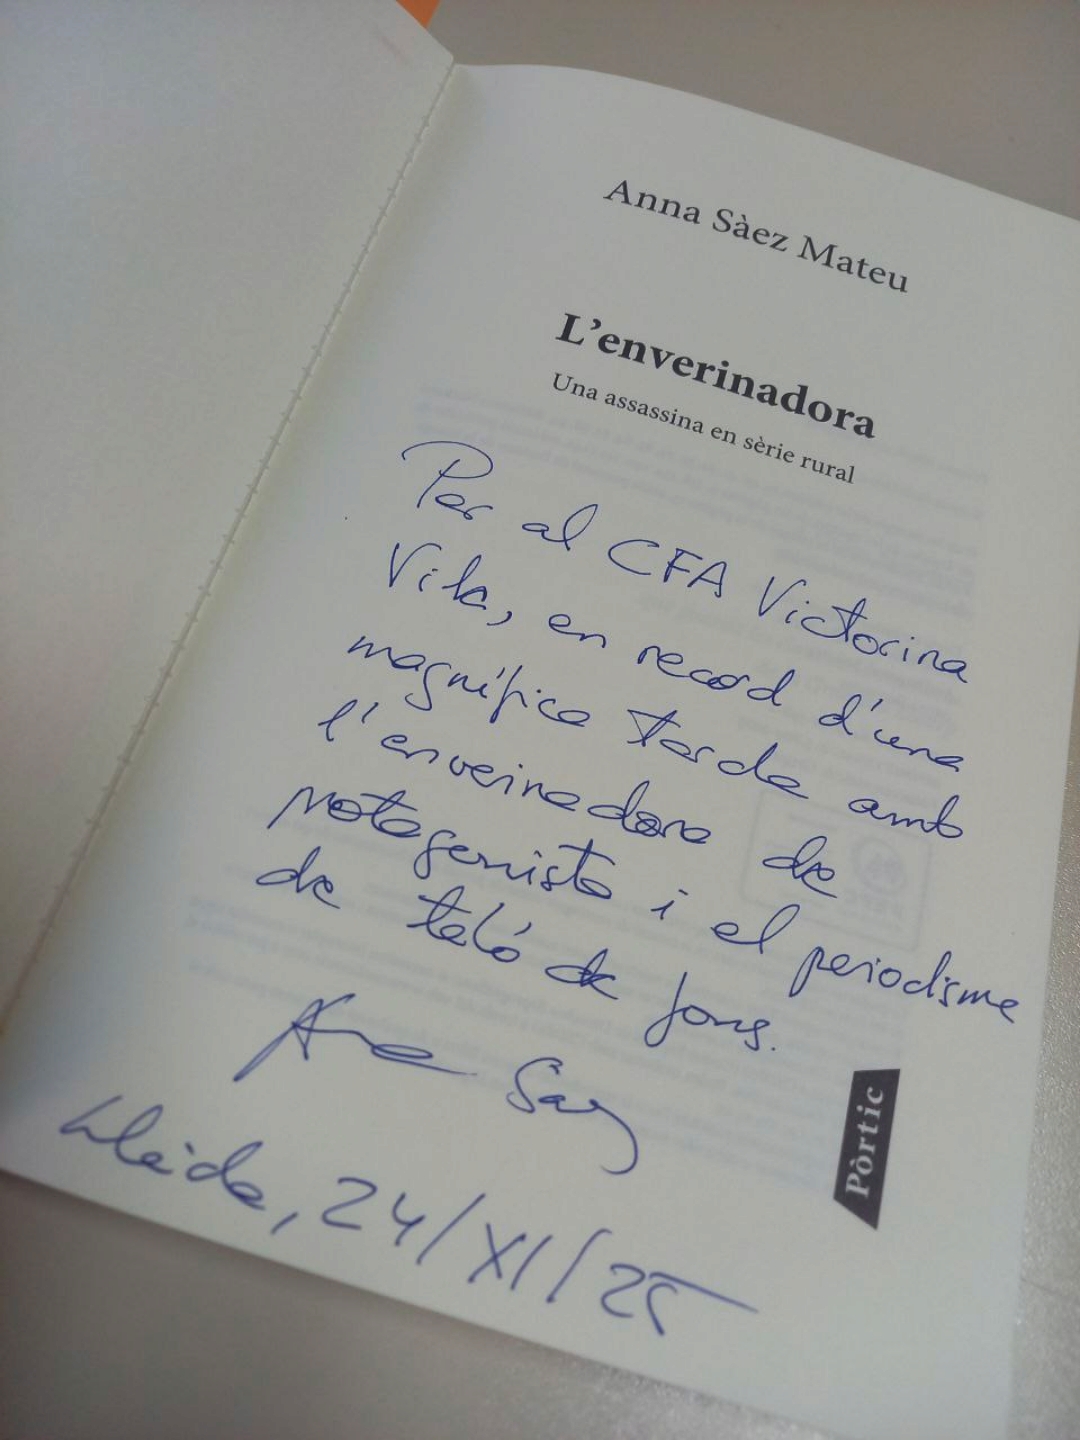 Anna Sàez Mateu
L'enverinadora
Una assassina en sèrie rural
Per al CFA Victorina
Vila, en record d'una
magnífica tarda amb
l'enverinadora de
protagonista i el periodisme
de teló de fons.
Anna Sàez
Lleida, 24/XI/25
Pòrtic